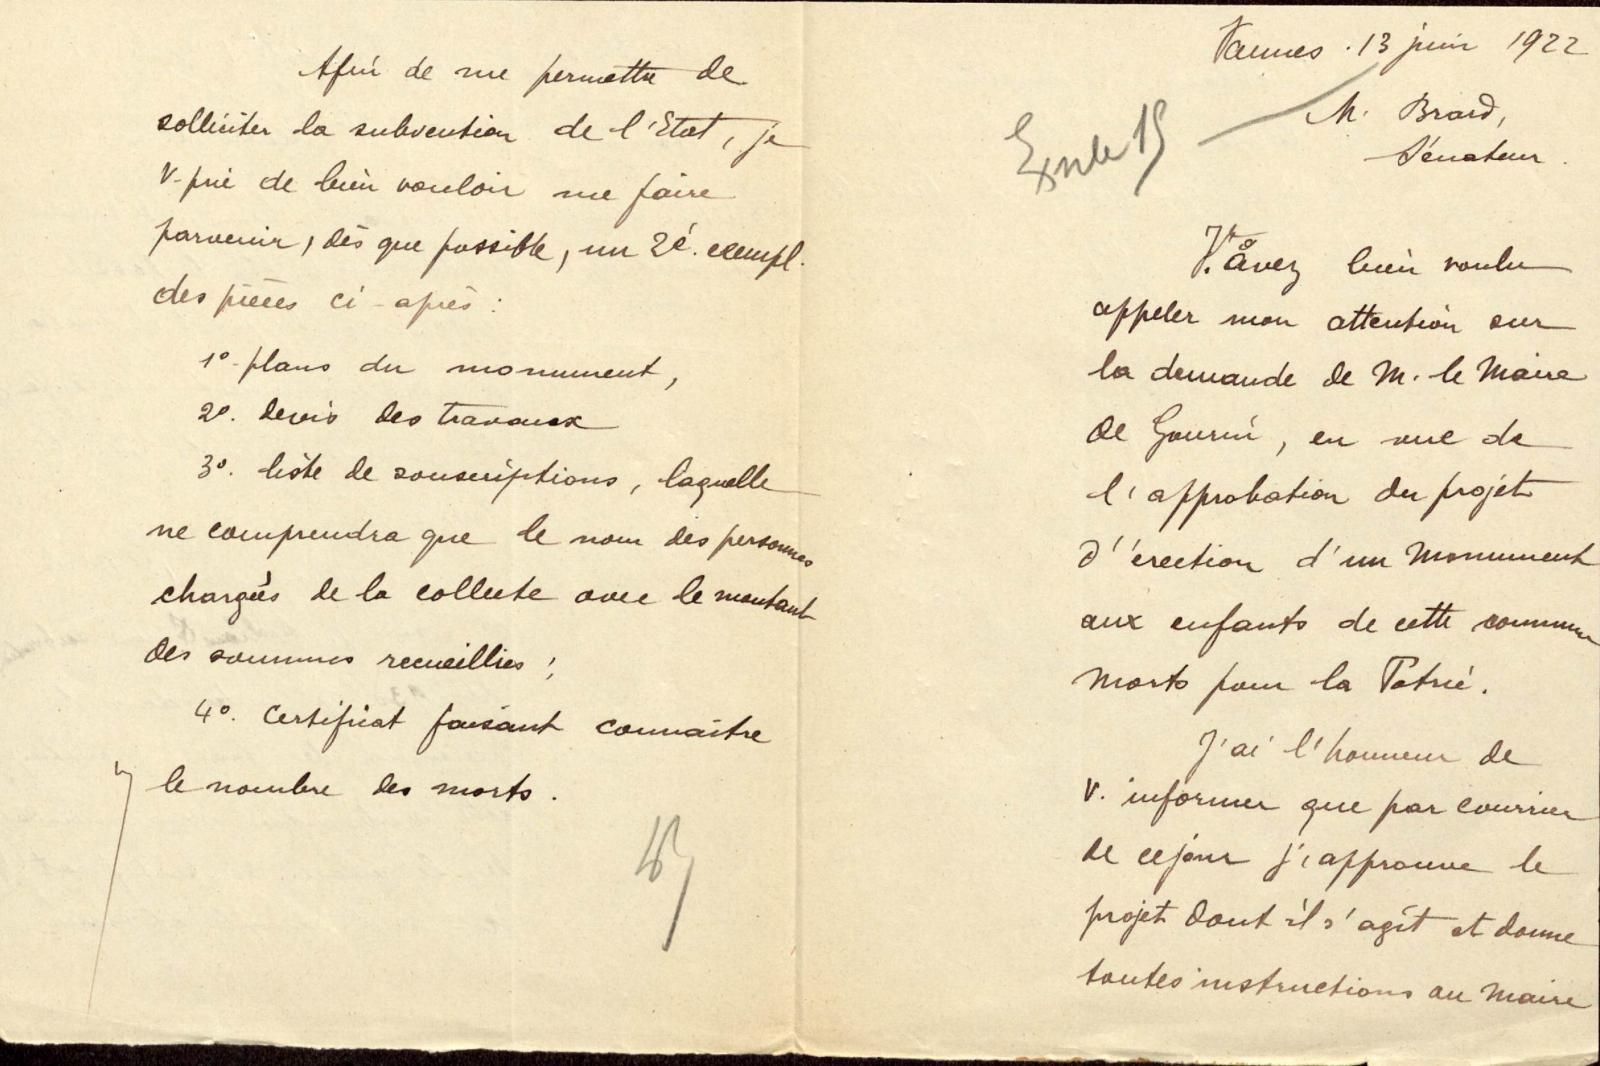 Afin de me permettre de
solliciter la subvention de l'Etat, je
V. prie de bien vouloir me faire
parvenir, dès que possible, un 2e. exempl.
des pièces ci-après :
1º- plans du monument,
2º. devis des travaux
3º. liste de souscriptions, laquelle
ne comprendra que le nom des personnes
chargées de la collecte avec le montant
des sommes recueillies ;
4º. Certificat faisant connaître
le nombre des morts.
Vannes . 13 juin 1922
M. Brard,
Sénateur.
V. avez bien voulu
appeler mon attention sur
la demande de M. le Maire
de Gourin, en vue de
l'approbation du projet
d'érection d'un Monument
aux enfants de cette commune
morts pour la Patrie.
J'ai l'honneur de
V. informer que par courrier
de ce jour j'approuve le
projet dont il s'agit et donne
toutes instructions au Maire